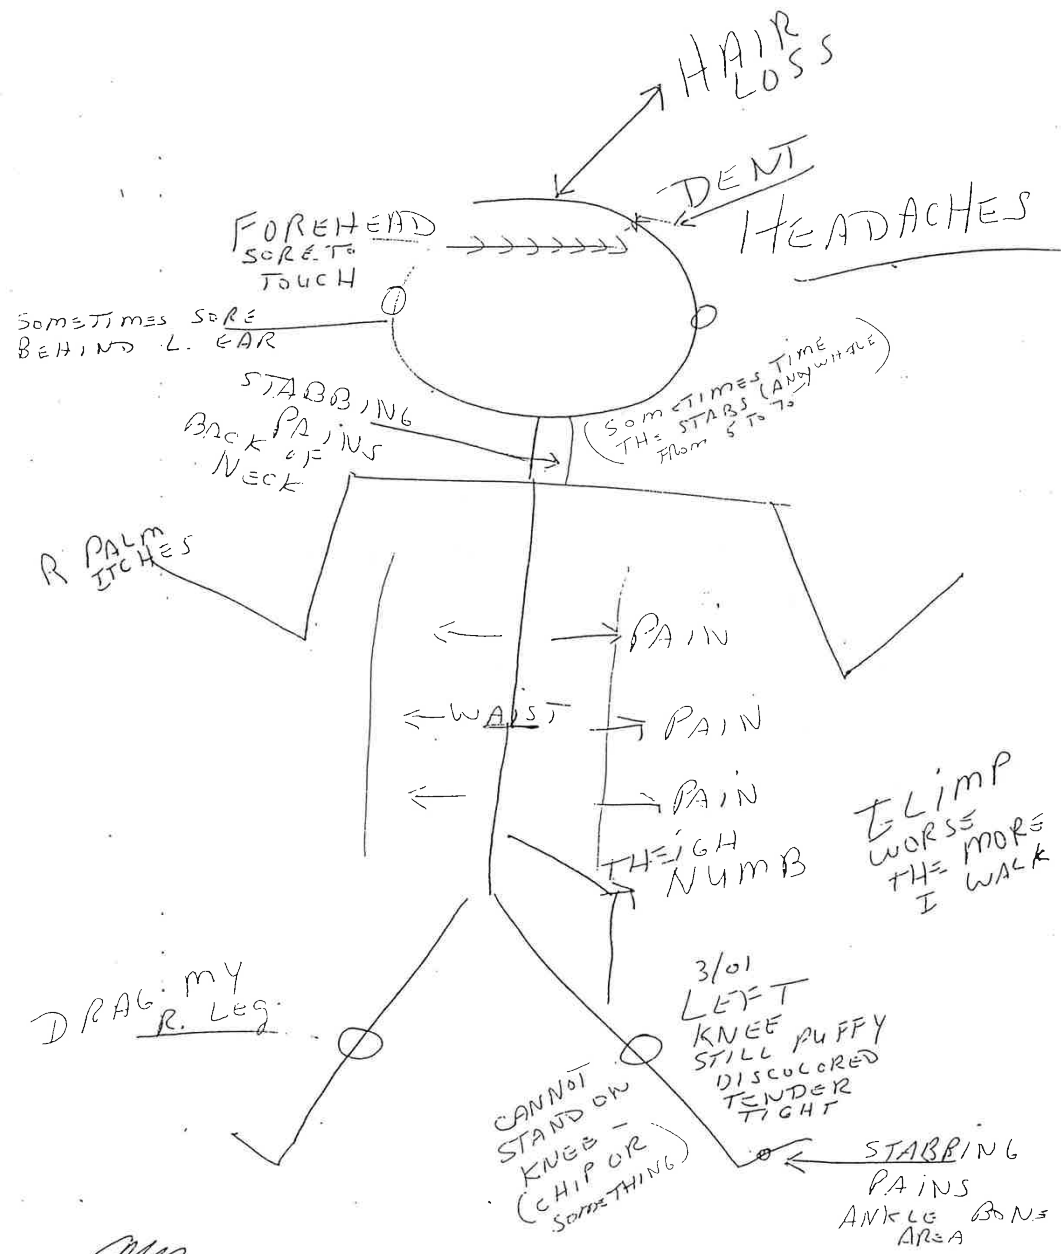 HAIR
LOSS
DENT
HEADACHES
FOREHEAD
SORE TO
TOUCH
SOMETIMES SORE
BEHIND L. EAR
STABBING
PAINS
BACK OF
NECK
(SOMETIMES TIME
THE STABS (ANYWHERE)
FROM 5 TO 70
R PALM
ITCHES
PAIN
WAIST
PAIN
PAIN
THEIGH
NUMB
I LIMP
WORSE
THE MORE
I WALK
DRAG MY
R. LEG.
3/01
LEFT
KNEE
STILL PUFFY
DISCOLORED
TENDER
TIGHT
CANNOT
STAND ON
KNEE -
(CHIP OR
SOMETHING)
STABBING
PAINS
ANKLE BONE
AREA